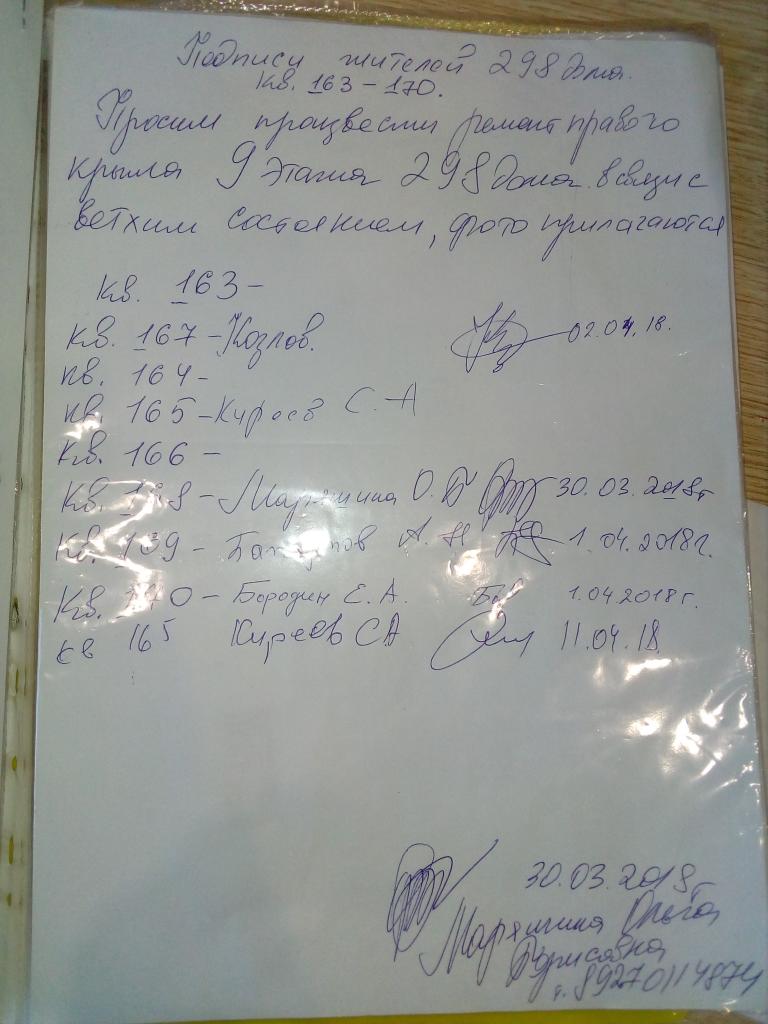 Подписи жителей 298 дома.
кв. 163 - 170.
Просим процвести ремонт правого
крыла 9 этажа 298 дома в связи с
ветхим состоянием, фото прилагаются
кв. 163 -
кв. 167 - Козлов. 02.04.18.
кв. 164 -
кв. 165 - Киреев С. А
кв. 166 -
кв. 168 - О. Б 30.03.2018г
кв. 169 - А. Н 1.04.2018г.
кв. 170 - Бородин Е. А. 1.04 2018г.
кв 165 Киреев СА 11.04.18.
30.03.2018г
Ольга
Борисовна
т. 89270114874